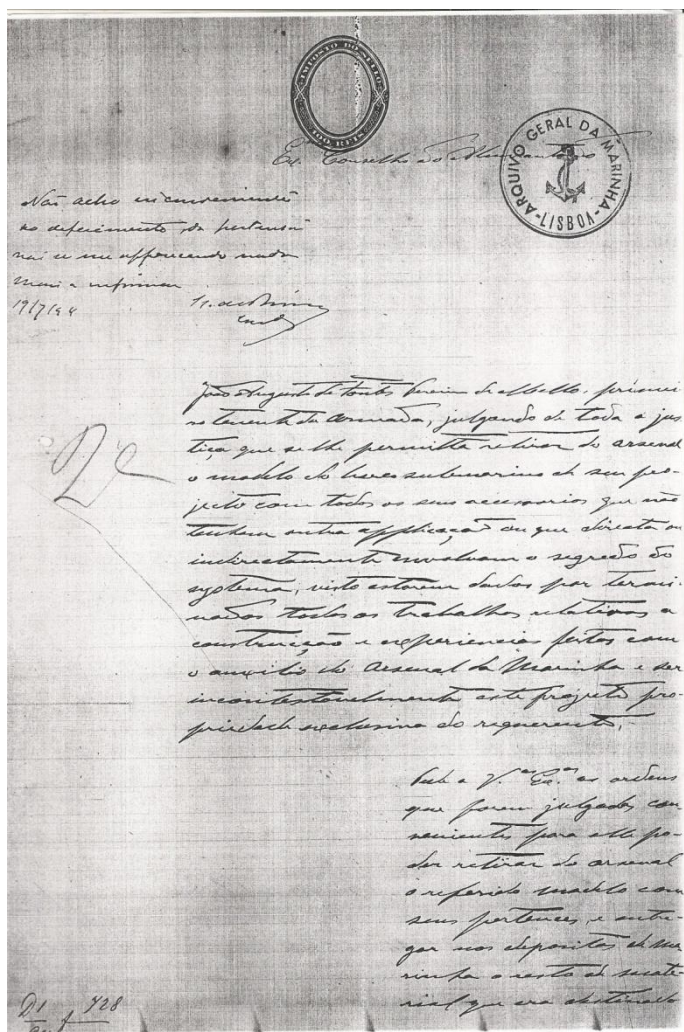 IMPOSTO DO SELLO
100 REIS
ARQUIVO GERAL DA MARINHA
LISBOA
Ex. Conselho do Almirantado
Não acho inconveniente
ao deferimento da pertensão
nada
mais a informar
19/7/94
João Augusto de Fontes Pereira de Mello, primei
ro tenente da Armada, julgando de toda a jus
tiça que se lhe permitta retirar do arsenal
o modelo do barco submarino de seu pro-
jecto com todos os seus accessorios que não
tenham outra applicação ou que directa ou
indirectamente envolvam o segredo do
systema, visto estarem dados por termi-
nados todos os trabalhos relativos a
construcção e experiencias feitas com
o auxilio do Arsenal da Marinha e ser
incontestavelmente este projecto pro-
priedade exclusiva do requerente,
Pede a V.as Ex.as as ordens
que forem julgadas con
venientes para elle po-
der retirar do arsenal
o referido modelo com
seus pertences, e entre-
gar nos depositos de ma
rinha o resto de mate-
rial que era destinado
728